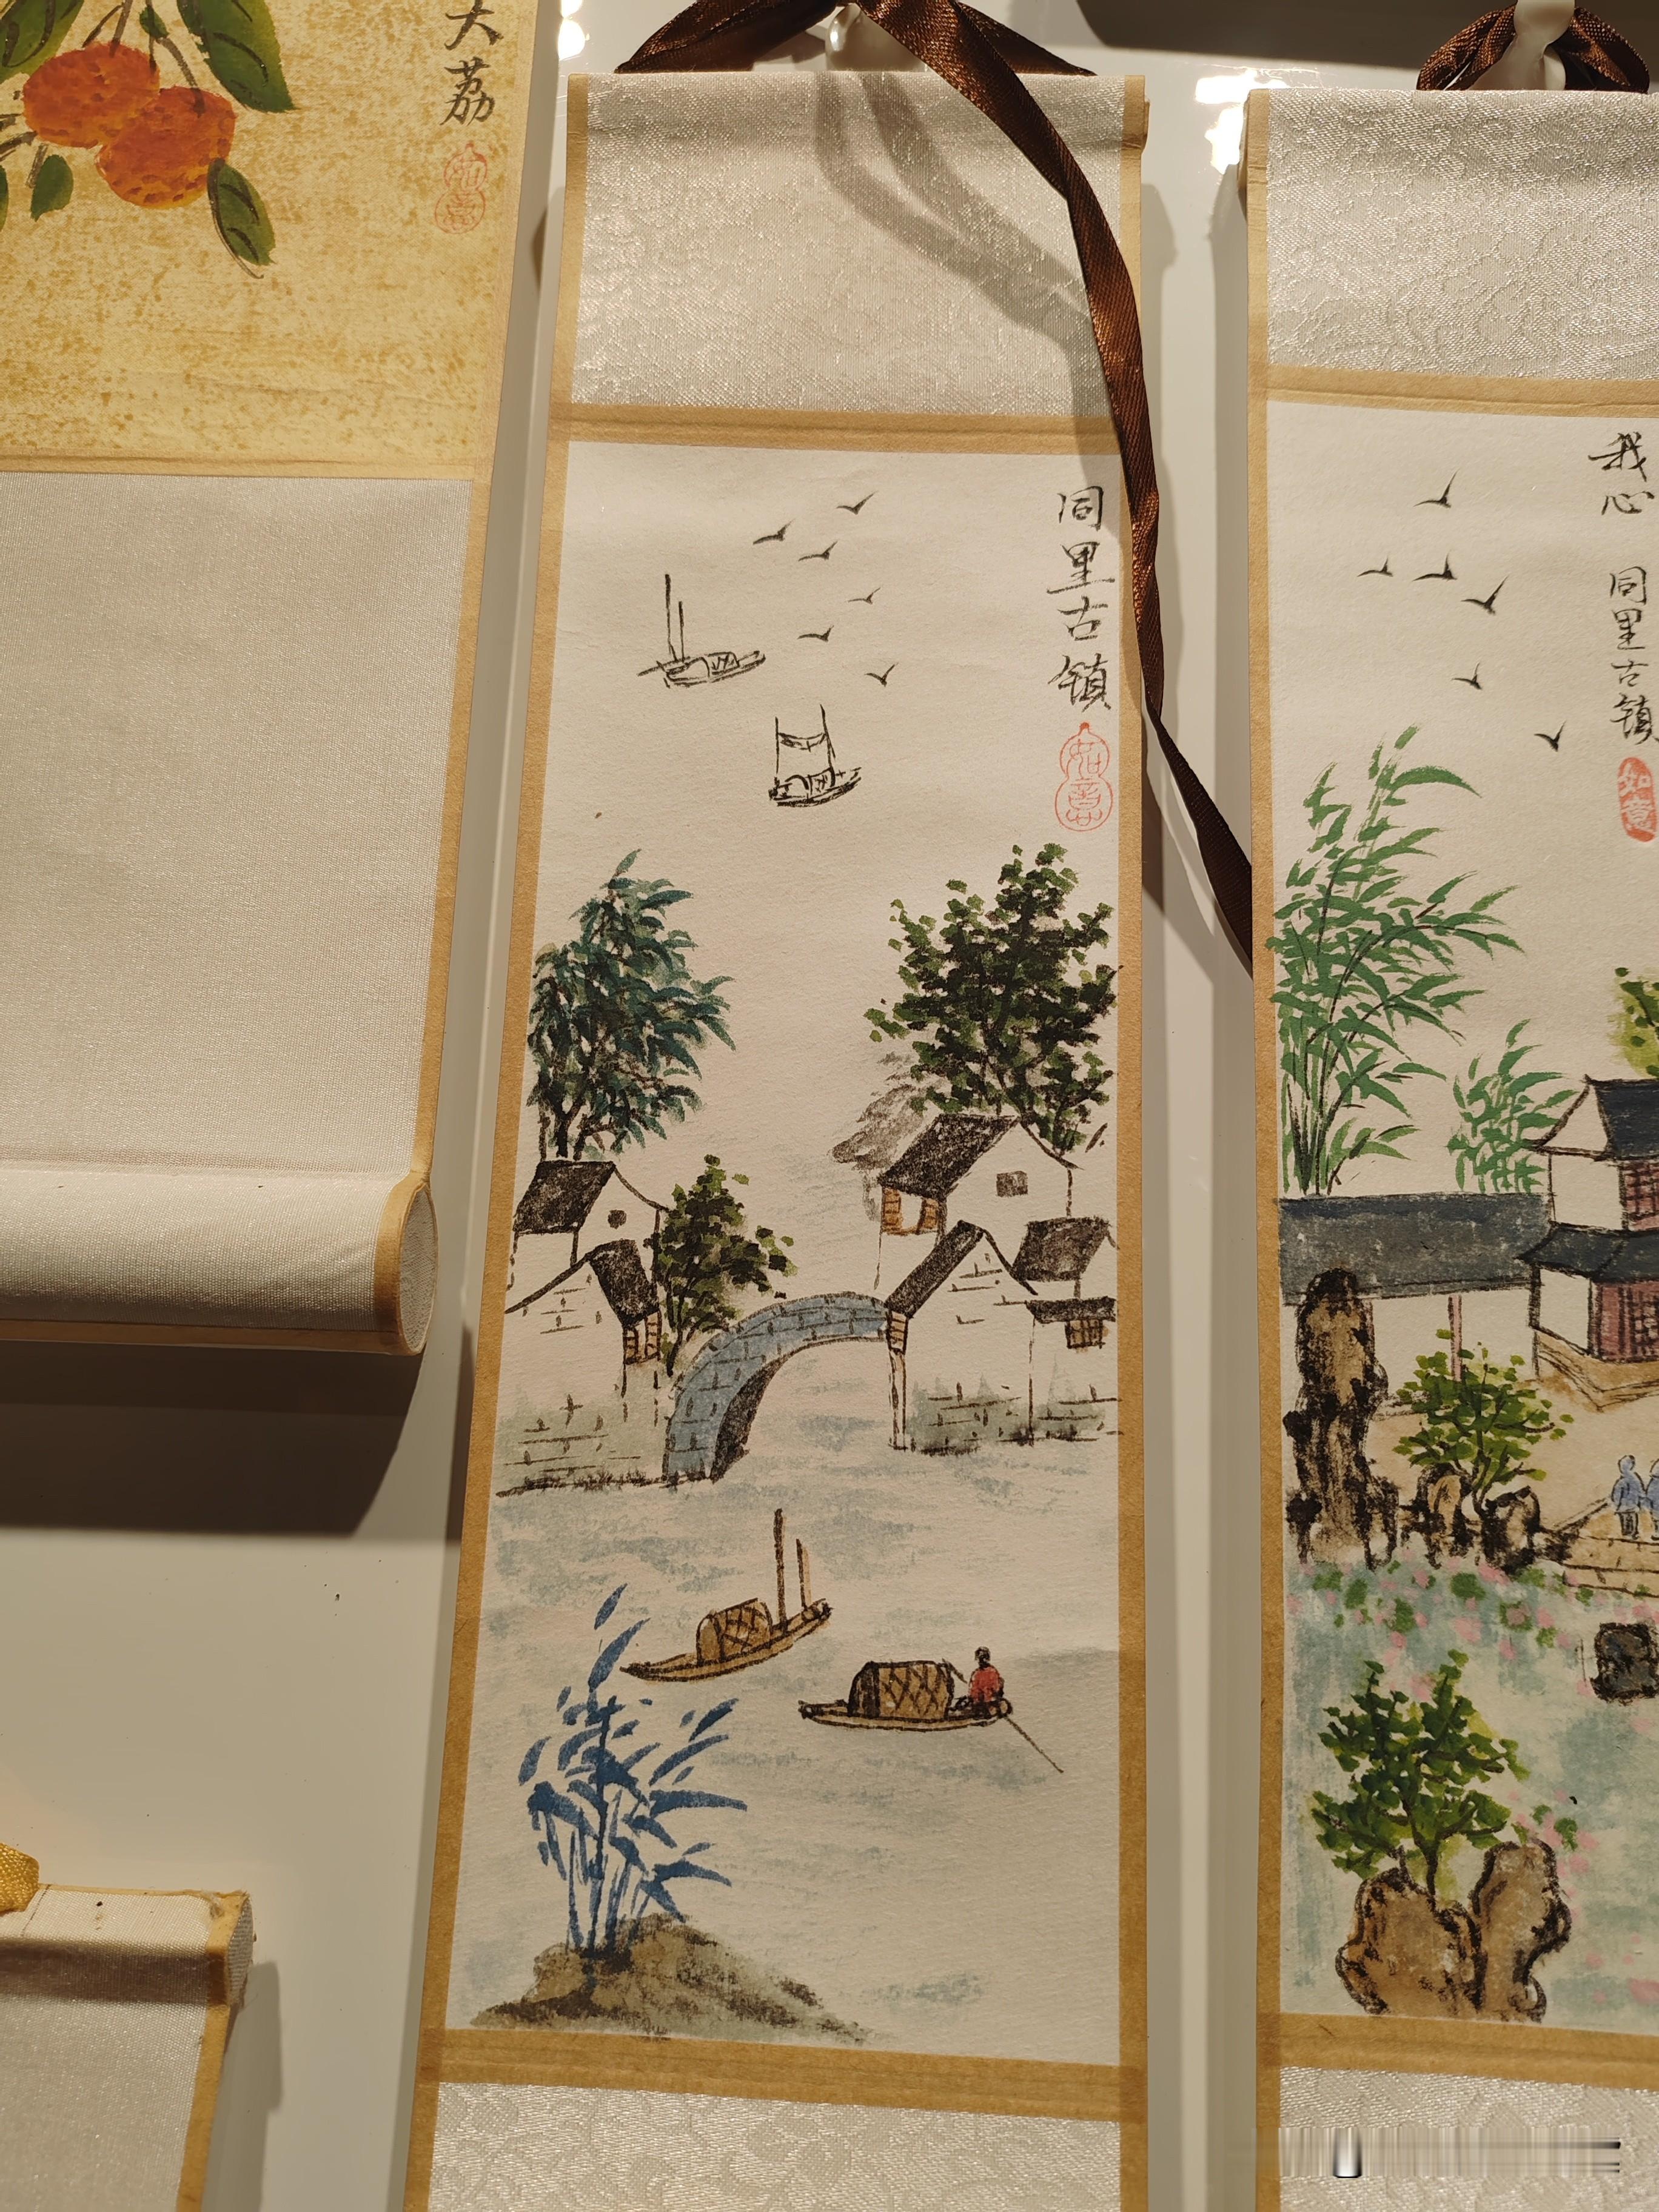 大荔
如意
同里古镇
如意
我心
同里古镇
如意